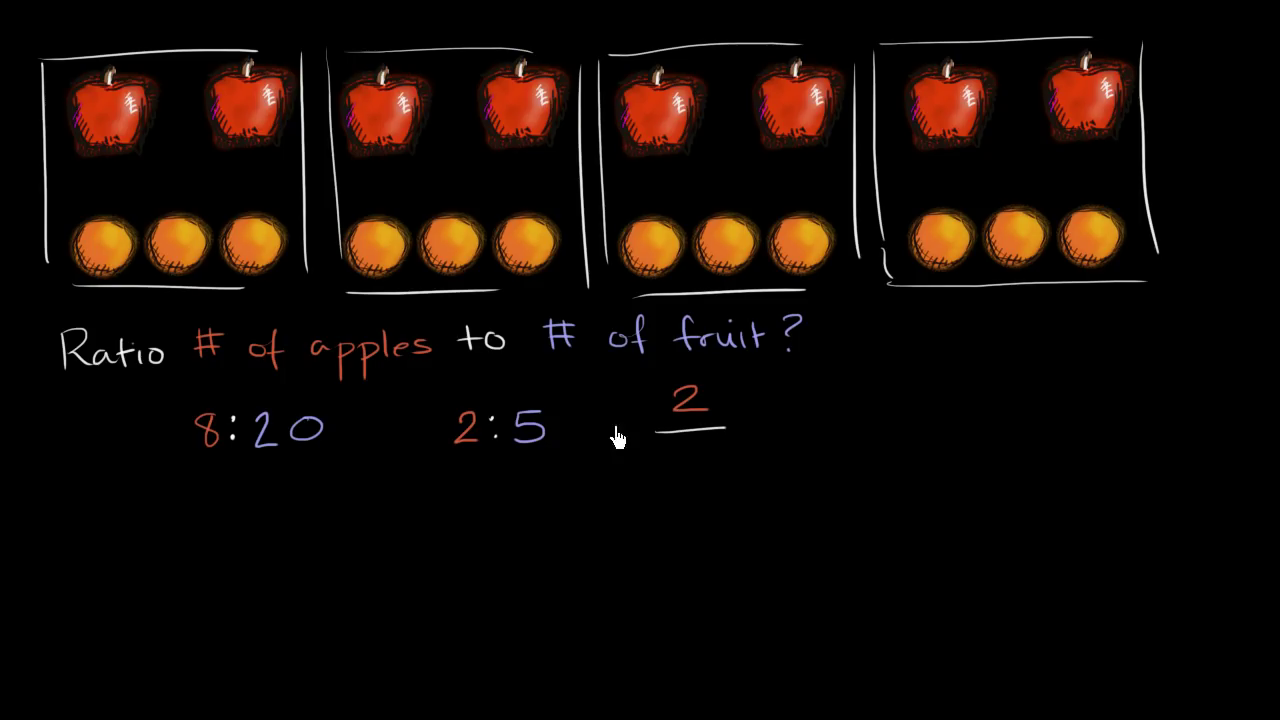 Ratio # of apples to # of fruit?
8:20 2:5 2